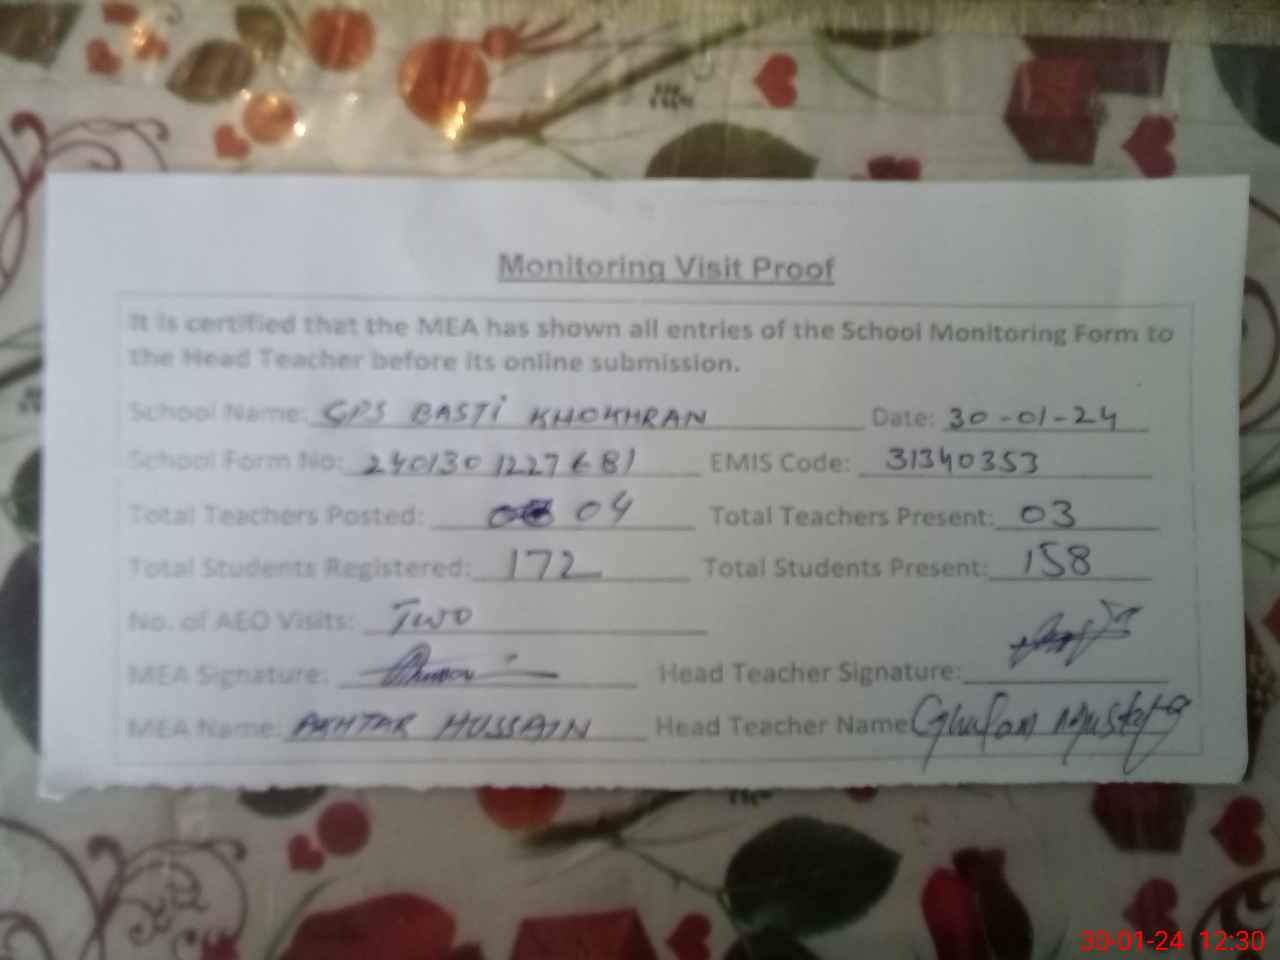 Monitoring Visit Proof
It is certified that the MEA has shown all entries of the School Monitoring Form to
the Head Teacher before its online submission.
School Name: GPS BASTi KHOKHRAN Date: 30-01-24
School Form No: 240130 1227681 EMIS Code: 31340353
Total Teachers Posted: 04 Total Teachers Present: 03
Total Students Registered: 172 Total Students Present: 158
No. of AEO Visits: Two
MEA Signature: Head Teacher Signature:
MEA Name: AKHTAR HUSSAIN Head Teacher Name Ghulam Mustafa
30-01-24 12:30